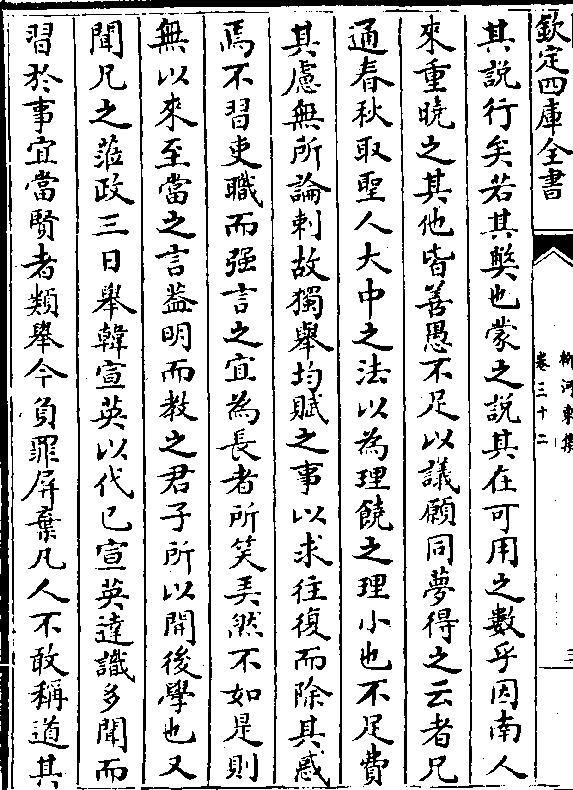 欽定四庫全書
柳河東集
卷三十二
三
其說行矣若其獘也蒙之說其在可用之數乎因南人
來重曉之其他皆善愚不足以議願同夢得之云者兄
通春秋取聖人大中之法以為理饒之理小也不足費
其慮無所論刺故獨舉均賦之事以求往復而除其惑
焉不習吏職而强言之宜為長者所笑弄然不如是則
無以來至當之言葢明而教之君子所以開後學也又
聞兄之蒞政三日舉韓宣英以代已宣英達識多聞而
習於事宜當賢者類舉今負罪屏棄凡人不敢稱道其